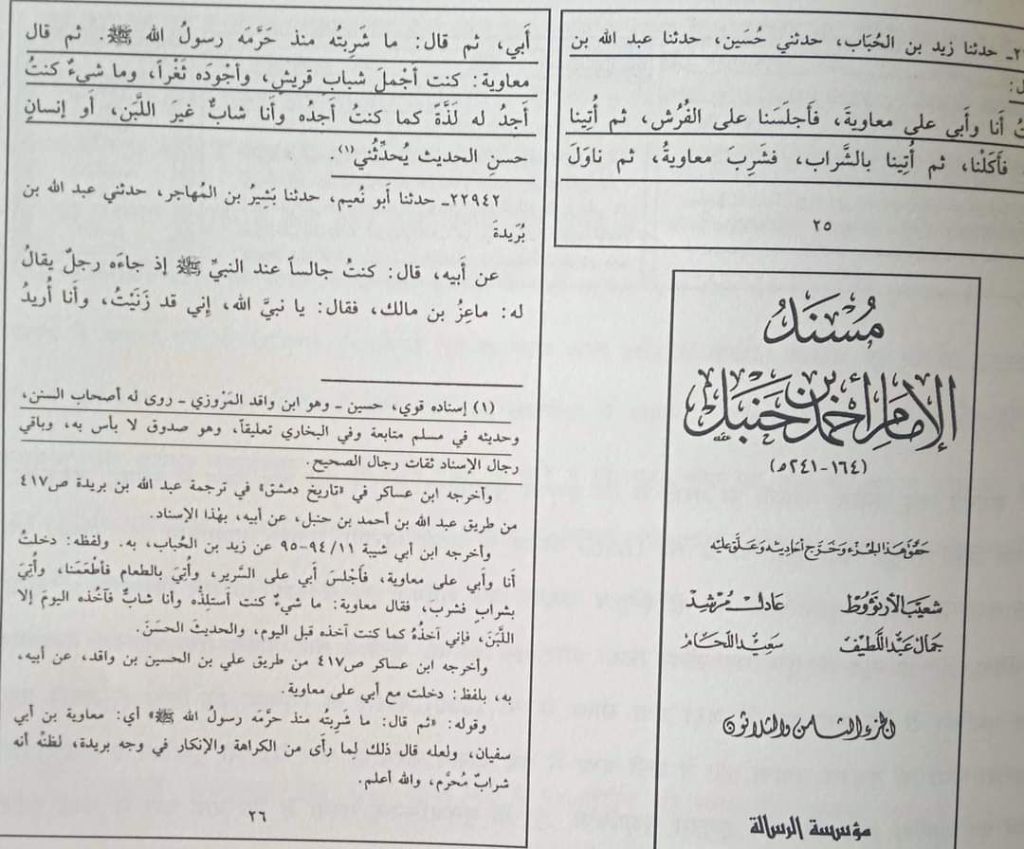 ـ حدثنا زيد بن الحُبَاب، حدثني حُسَين، حدثنا عبد الله بن
أنا وأبي على معاويةَ، فأجلَسَنا على الفُرُش، ثم أُتِينا
فأَكَلْنا، ثم أُتِينا بالشَّراب، فشَرِبَ معاويةُ، ثم ناوَلَ
٢٥
أَبي، ثم قال: ما شَرِبتُه منذ حَرَّمَه رسولُ الله ﷺ. ثم قال
معاوية: كنت أَجْملَ شبابِ قريش، وأجْودَه ثَغْراً، وما شيءٌ كنتُ
أَجِدُ له لَذَّةً كما كنتُ أَجِدُه وأنا شابٌّ غيرَ اللَّبَن، أو إنسانٍ
حسنِ الحديث يُحدِّثُني(١).
٢٢٩٤٢ـ حدثنا أبو نُعيم، حدثنا بَشيرُ بن المُهاجر، حدثني عبد الله بن
بُرَيدةَ
عن أبيه، قال: كنتُ جالساً عند النبيِّ ﷺ إذ جاءَه رجلٌ يقالُ
له: ماعِزُ بن مالك، فقال: يا نبيَّ الله، إني قد زَنَيْتُ، وأنا أُريدُ
(١) إسناده قوي، حسين ـ وهو ابن واقد المَرْوزي ـ روى له أصحاب السنن،
وحديثه في مسلم متابعة وفي البخاري تعليقاً، وهو صدوق لا بأس به، وباقي
رجال الإسناد ثقات رجال الصحيح.
وأخرجه ابن عساكر في «تاريخ دمشق» في ترجمة عبد الله بن بريدة ص٤١٧
من طريق عبد الله بن أحمد بن حنبل، عن أبيه، بهٰذا الإسناد.
وأخرجه ابن أبي شيبة ٩٤/١١-٩٥ عن زيد بن الحُباب، به. ولفظه: دخلتُ
أنا وأبي على معاوية، فأجْلسَ أبي على السَّرير، وأُتِيَ بالطعام فأطْعَمَنا، وأُتِيَ
بشرابٍ فشَرِبَ، فقال معاوية: ما شيءٌ كنت أستلِذُّه وأنا شابٌّ فآخُذه اليومَ إلا
اللَّبَنَ، فإني آخذُه كما كنت آخذه قبل اليوم، والحديثَ الحسَنَ.
وأخرجه ابن عساكر ص٤١٧ من طريق علي بن الحسين بن واقد، عن أبيه،
به، بلفظ: دخلت مع أبي على معاوية.
وقوله: «ثم قال: ما شَرِبتُه منذ حرَّمَه رسولُ الله ﷺ» أي: معاوية بن أبي
سفيان، ولعله قال ذلك لما رأى من الكراهة والإنكار في وجه بريدة، لظنِّه أنه
شرابٌ مُحرَّم، والله أعلم.
٢٦
مُسْنَدُ
الإمام أحمد بن حنبل
(١٦٤-٢٤١ه)
حقّق هذا الجزء وخرّج أحاديثه وعلّق عليه
شعيب الأرنؤوط عادل مرشد
جمال عبد اللطيف سعيد اللحام
الجزء الثامن والثلاثون
مؤسسة الرسالة